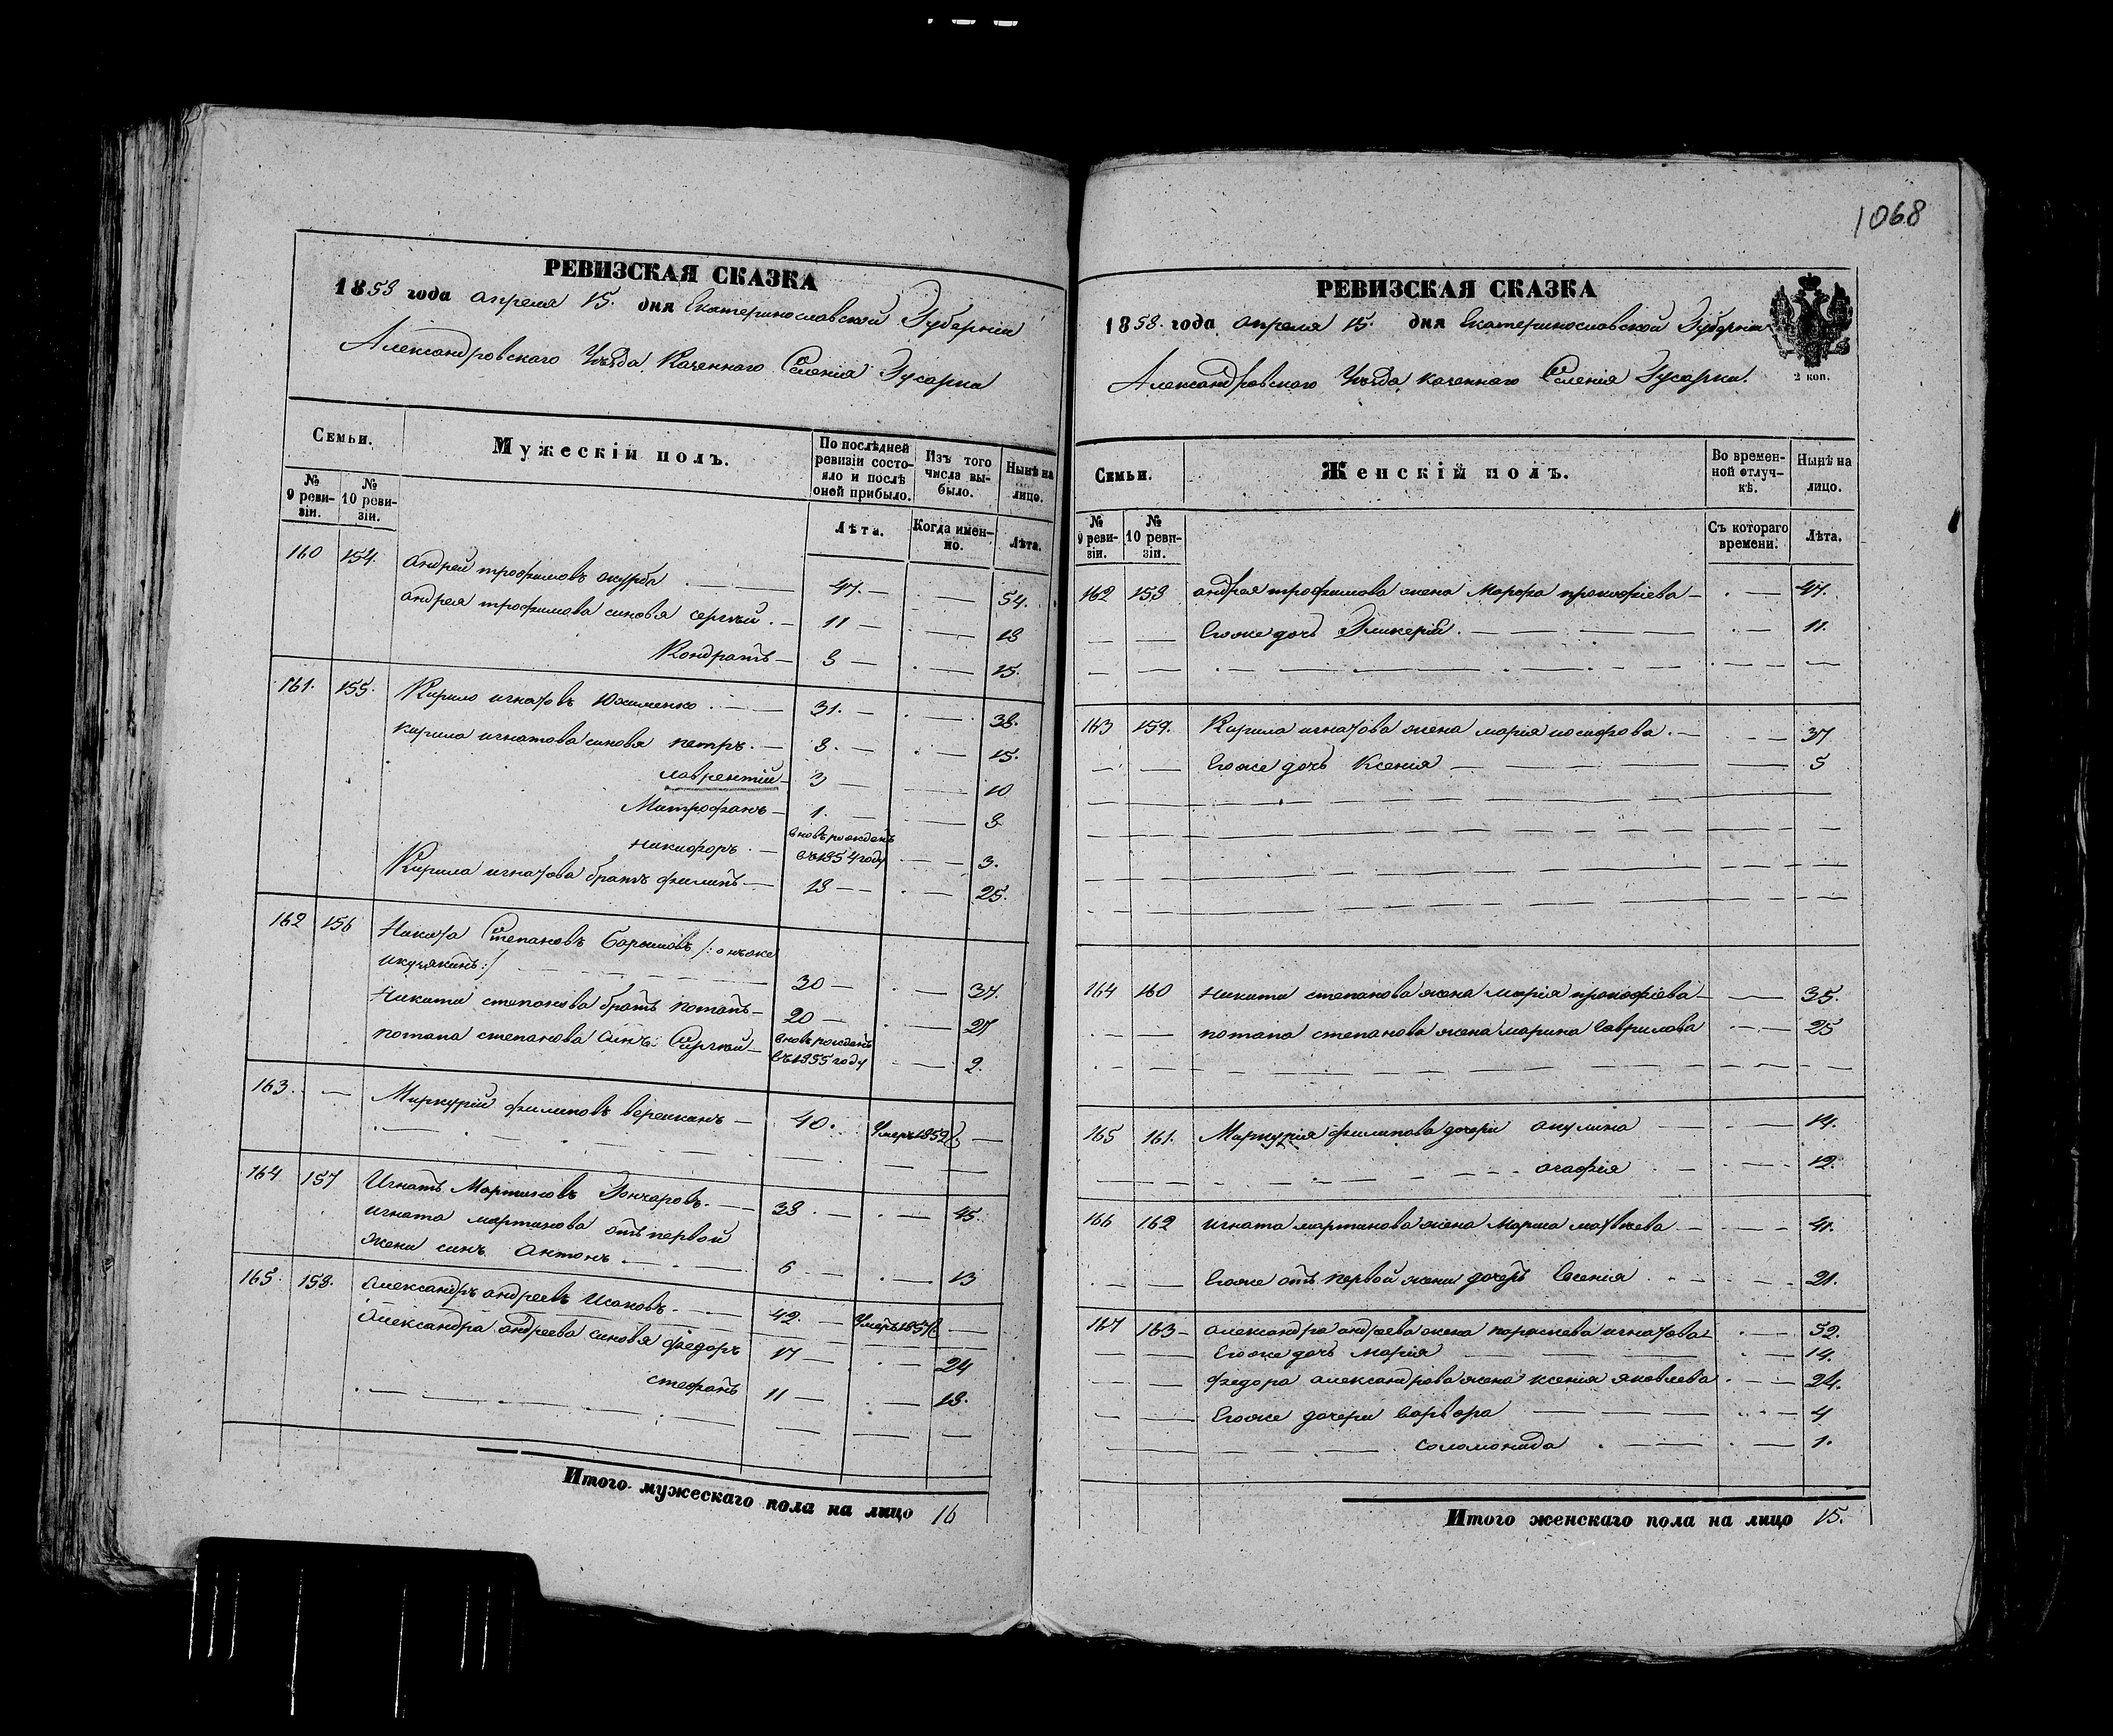 1068
РЕВИЗСКАЯ СКАЗКА
1858 года апреля 15. дня Екатеринославской Губерніи
Александровскаго Уѣзда Казеннаго Селенія Гусарки
Семьи.
Мужескій полъ.
По послѣдней ревизіи состояло и послѣ оной прибыло.
Изъ того числа выбыло.
Нынѣ на лицо.
№ 9 ревизіи.
№ 10 ревизіи.
Лѣта.
Когда именно.
Лѣта.
160 154. Андрей трофимовъ 47. — . — 54.
андрея трофимова синовя сергѣй . — 11 — . — 18
Кондратъ — 8 — . — 15.
161. 155. Кирило игнатовъ Юхименко . — 31. — . — 38.
кирила игнатова синовя петръ. — 8. — . — 15.
лаврентій 3 — — 10
Митрофанъ — 1. — — 8
никифоръ . — вновь рожденъ въ 1854 году — 3.
Кирила игнатова братъ филипъ — 18 — . — 25.
162 156 Никита Степановъ /: онъже
:/ — 30 — . — 37.
Никити степанова братъ потапъ — 20 — . — 27
потапа степанова синъ: Сергѣй — вновь рожденъ въ 1855 году — 2.
163. — Меркурій филиповъ — 40. Умеръ 1852 —
164 157 Игнатъ Мартиновъ Гончаровъ. — 38. — . — 45.
игната мартинова отъ первой
жени синъ Антонъ — 6 — . — 13
165. 158. Александръ андреевъ Исаковъ. — 42. — Умеръ 1857 —
Александра андреева синовя федоръ 17 — . — 24
стефанъ 11 — . — 18.
Итого мужескаго пола на лицо 16
РЕВИЗСКАЯ СКАЗКА
1858. года апреля 15. дня Екатеринославской Губерніи
Александровскаго Уѣзда казеннаго Селенія Гусарки.
2 коп.
Семьи.
Женскій полъ.
Во временной отлучкѣ.
Нынѣ на лицо.
№ 9 ревизіи.
№ 10 ревизіи.
Съ котораго времени.
Лѣта.
162 158 андрея трофимова жена Марфа прокофіева — . — 47.
Егоже дочь Гликерія . — . — 11.
163 159. Кирила игнатова жена марія иосифова . — — 37
Егоже дочь Ксенія — — 5
164 160 никити степанова жена марія прокофіева — — 35.
потапа степанова жена марина Гаврилова — 25
165 161. Меркурія филипова дочери акулина — . — 14.
агафія — . — 12.
166 162 игната мартинова жена Мариа матвѣева — — 41.
Егоже отъ первой жени дочеръ Евгенія . — 21.
167 163 — александра андреева жена параскева игнатова — . — 52.
Егоже дочь марія — . — 14.
федора александрова жена ксенія яковлева . — 24.
Егоже дочери варвара — — 4
соломонида . — . — 1.
Итого женскаго пола на лицо 15.